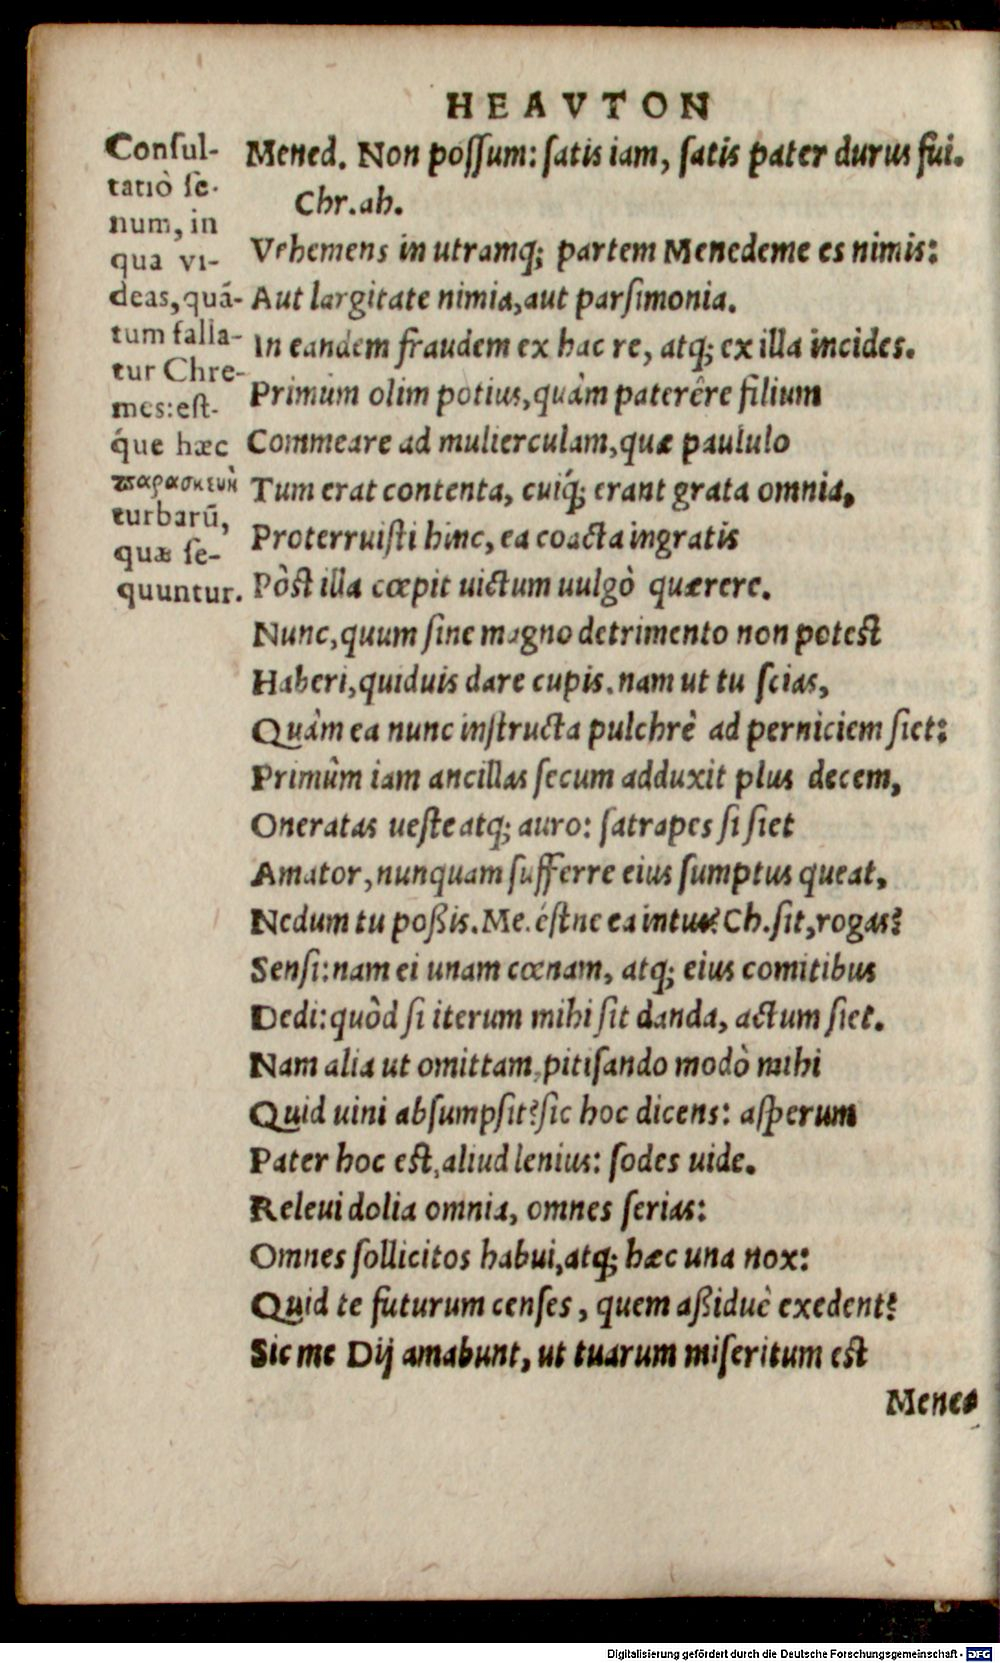 HEAVTON
Consul-
tatiò se-
num, in
qua vi-
deas, quā-
tum falla-
tur Chre-
mes: est-
q́ue hæc
παρασκευὴ
turbarū,
quæ se-
quuntur.
Mened. Non possum: satis iam, satis pater durus fui.
Chr. ah.
Vehemens in utramq; partem Menedeme es nimis:
Aut largitate nimia, aut parsimonia.
In eandem fraudem ex hac re, atq; ex illa incides.
Primùm olim potius, quàm paterêre filium
Commeare ad mulierculam, quæ paululo
Tum erat contenta, cuiq́; erant grata omnia,
Proterruisti hinc, ea coacta ingratis
Pòst illa cœpit uictum uulgò quærere.
Nunc, quum sine magno detrimento non potest
Haberi, quiduis dare cupis. nam ut tu scias,
Quàm ea nunc instructa pulchrè ad perniciem siet:
Primùm iam ancillas secum adduxit plus decem,
Oneratas ueste atq; auro: satrapes si siet
Amator, nunquam sufferre eius sumptus queat,
Nedum tu poßis. Me. éstne ea intus? Ch. sit, rogas?
Sensi: nam ei unam cœnam, atq; eius comitibus
Dedi: quòd si iterum mihi sit danda, actum siet.
Nam alia ut omittam, pitisando modò mihi
Quid uini absumpsit? sic hoc dicens: asperum
Pater hoc est, aliud lenius: sodes uide.
Releui dolia omnia, omnes serias:
Omnes sollicitos habui, atq; hæc una nox:
Quid te futurum censes, quem aßiduè exedent?
Sic me Dij amabunt, ut tuarum miseritum est
Mene-
Digitalisierung gefördert durch die Deutsche Forschungsgemeinschaft - DFG